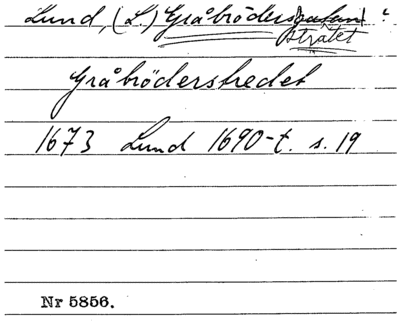 Lund, (L.) Gråbrödersgatan :
strätet
Gråbröderstredet
1673 Lund 1690-t. s. 19
Nr 5856.